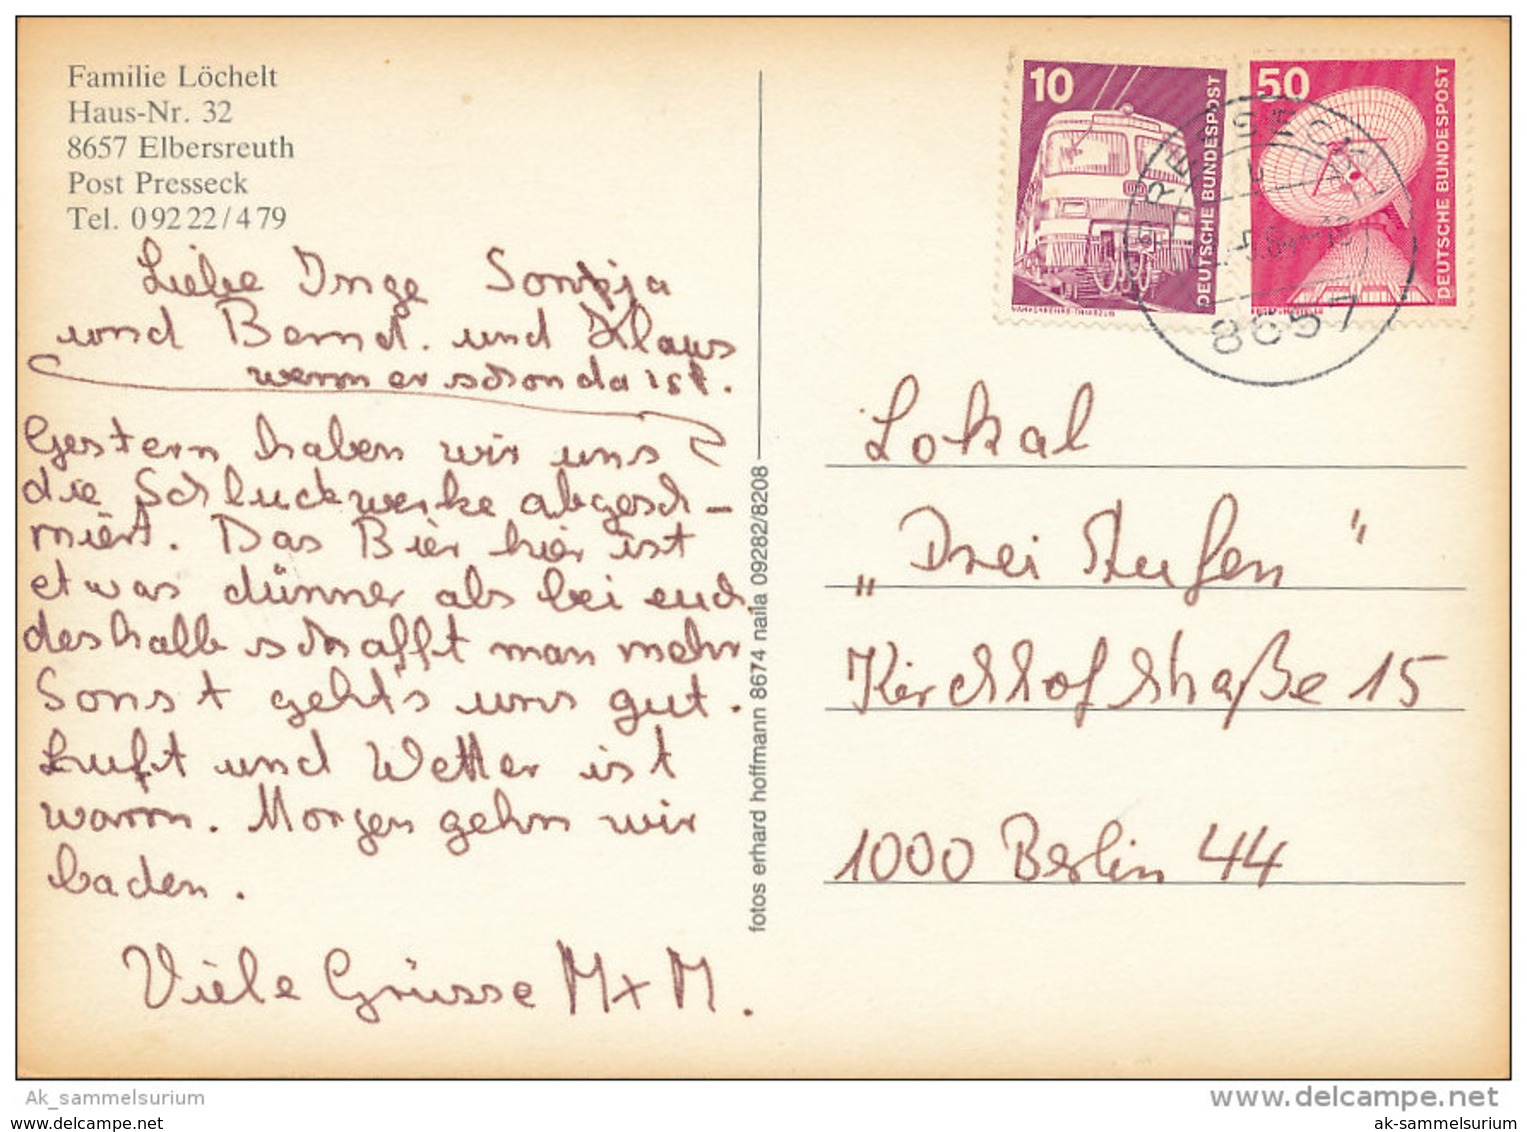 Familie Löchelt
Haus-Nr. 32
8657 Elbersreuth
Post Presseck
Tel. 0 92 22 / 4 79
Liebe Inge Sonja
und Bernd. und Klaus
wenn er schon da ist.
Gestern haben wir uns
die Schluckwerke abgesch-
miert. Das Bier hier ist
etwas dünner als bei euch.
deshalb schafft man mehr
Sonst geht's uns gut.
Luft und Wetter ist
warm. Morgen gehn wir
baden.
Viele Grüsse M+M.
fotos erhard hoffmann 8674 naila 09282/8208
10
DEUTSCHE BUNDESPOST
NAHVERKEHRS-TRIEBZUG
50
DEUTSCHE BUNDESPOST
PRESSECK
8657
Lokal
„Drei Stufen"
Kirchhofstraße 15
1000 Berlin 44
Ak_sammelsurium
www.delcampe.net
ak-sammelsurium.com
ak-sammelsurium